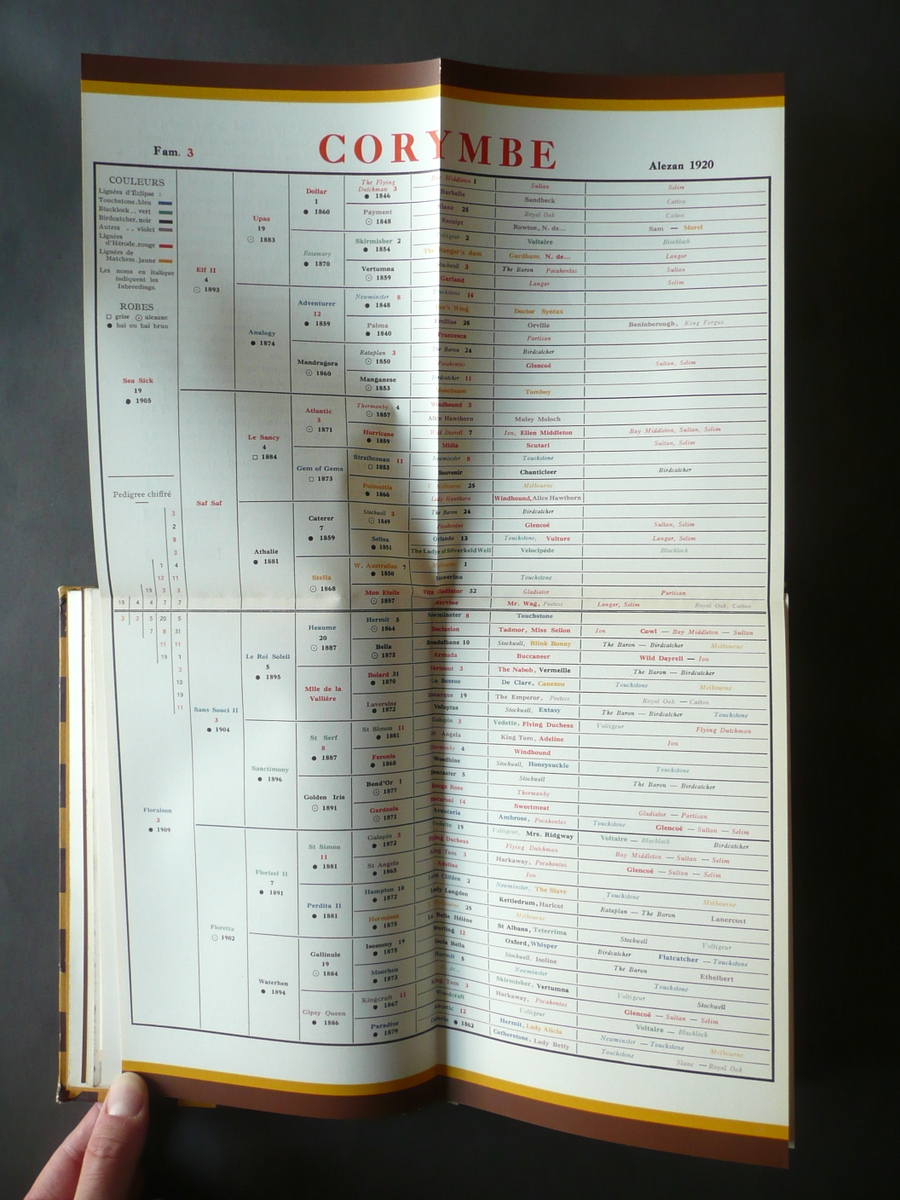 CORYMBE
Fam. 3
Alezan 1920
COULEURS
Lignées d'Eclipse :
Touchstone.bleu
Blacklock .. vert
Birdcatcher.noir
Autres .. violet
Lignées
d'Hérode.rouge
Lignées de
Matchem.jaune
Les noms en italique
indiquent les
Inbreedings.
ROBES
grise alezane
bai ou bai brun
Sea Sick
19
1905
Pedigree chiffré
Floraison
3
1909
Elf II
4
1893
Saf Saf
Sans Souci II
3
1904
Floretta
1902
Upas
19
1883
Analogy
1874
Le Sancy
4
1884
Athalie
1881
Le Roi Soleil
5
1895
Sanctimony
1896
Florizel II
7
1891
Waterhen
1894
Dollar
1
1860
Rosemary
1870
Adventurer
12
1859
Mandragora
1860
Atlantic
3
1871
Gem of Gems
1873
Caterer
7
1859
Stella
1868
Heaume
20
1887
Mlle de la
Vallière
St Serf
8
1887
Golden Iris
1891
St Simon
11
1881
Perdita II
1881
Gallinule
19
1884
Gipsy Queen
1886
The Flying
Dutchman 3
1846
Payment
1848
Skirmisher 2
1854
Vertumna
1859
Newminster 8
1848
Palma
1840
Rataplan 3
1850
Manganese
1853
Thormanby 4
1857
Hurricane
1859
Strathconan 11
1853
Poinsettia
1866
Stockwell 3
1849
Selina
1851
W. Australian 7
1850
Mon Etoile
1857
Hermit 5
1864
Bella
1873
Dolard 31
1870
Laversine
1872
St Simon 11
1881
Feronia
1868
Bend'Or 1
1877
Gardenia
1871
Galopin 3
1872
St Angela
1865
Hampton 10
1872
Hermione
1875
Isonomy 19
1875
Moorhen
1873
Kingcraft 11
1867
Paradise
1879
Sultan
Selim
Sandbeck
Catton
Royal Oak
Catton
Rowton, N. de...
Sam — Morel
Voltaire
Blacklock
Gardham, N. de...
Langar
The Baron Pocahontas
Sultan
Langar
Selim
Doctor Syntax
Orville
Beninborough, King Fergus
Partisan
The Baron 24
Birdcatcher
Glencoé
Sultan, Selim
Birdcatcher 11
Tomboy
Windhound 3
Alice Hawthorn
Muley Moloch
Wild Dayrell 7
Ion, Ellen Middleton
Bay Middleton, Sultan, Selim
Midia
Scutari
Sultan, Selim
Newminster 8
Touchstone
Souvenir
Chanticleer
Birdcatcher
Melbourne
Lady Hawthorn
Windhound, Alice Hawthorn
The Baron 24
Birdcatcher
Pocahontas
Glencoé
Sultan, Selim
Orlando 13
Touchstone, Vulture
Langar, Selim
The Lady of Silverkeld Well
Velocipède
Blacklock
Touchstone
Gladiator
Partisan
Mr. Wag, Poetess
Langar, Selim
Royal Oak, Catton
Newminster 8
Touchstone
Seclusion
Tadmor, Miss Sellon
Ion
Cowl — Bay Middleton — Sultan
Breadalbane 10
Stockwell, Blink Bonny
The Baron — Birdcatcher
Melbourne
Armada
Buccaneer
Wild Dayrell — Ion
The Nabob, Vermeille
The Baron — Birdcatcher
De Clare, Canezou
Touchstone
Melbourne
The Emperor, Poetess
Royal Oak — Catton
Stockwell, Extasy
The Baron — Birdcatcher
Touchstone
Vedette, Flying Duchess
Voltigeur
Flying Dutchman
King Tom, Adeline
Ion
Windhound
Stockwell, Honeysuckle
Touchstone
Stockwell
The Baron — Birdcatcher
Thormanby
Sweetmeat
Gladiator — Partisan
Ambrose, Pocahontas
Touchstone
Glencoé — Sultan — Selim
Voltigeur, Mrs. Ridgway
Voltaire — Blacklock
Birdcatcher
Flying Dutchman
Bay Middleton — Sultan — Selim
Harkaway, Pocahontas
Glencoé — Sultan — Selim
Ion
Newminster, The Slave
Touchstone
Melbourne
Kettledrum, Haricot
Rataplan — The Baron
Lanercost
Melbourne
St Albans, Teterrima
Stockwell
Voltigeur
Oxford, Whisper
Birdcatcher
Flatcatcher — Touchstone
Stockwell, Isoline
The Baron
Ethelbert
Newminster
Touchstone
Skirmisher, Vertumna
Voltigeur
Stockwell
Harkaway, Pocahontas
Glencoé — Sultan — Selim
Voltigeur
Voltaire — Blacklock
Hermit, Lady Alicia
Newminster — Touchstone
Melbourne
Catherstone, Lady Betty
Touchstone
Slane — Royal Oak